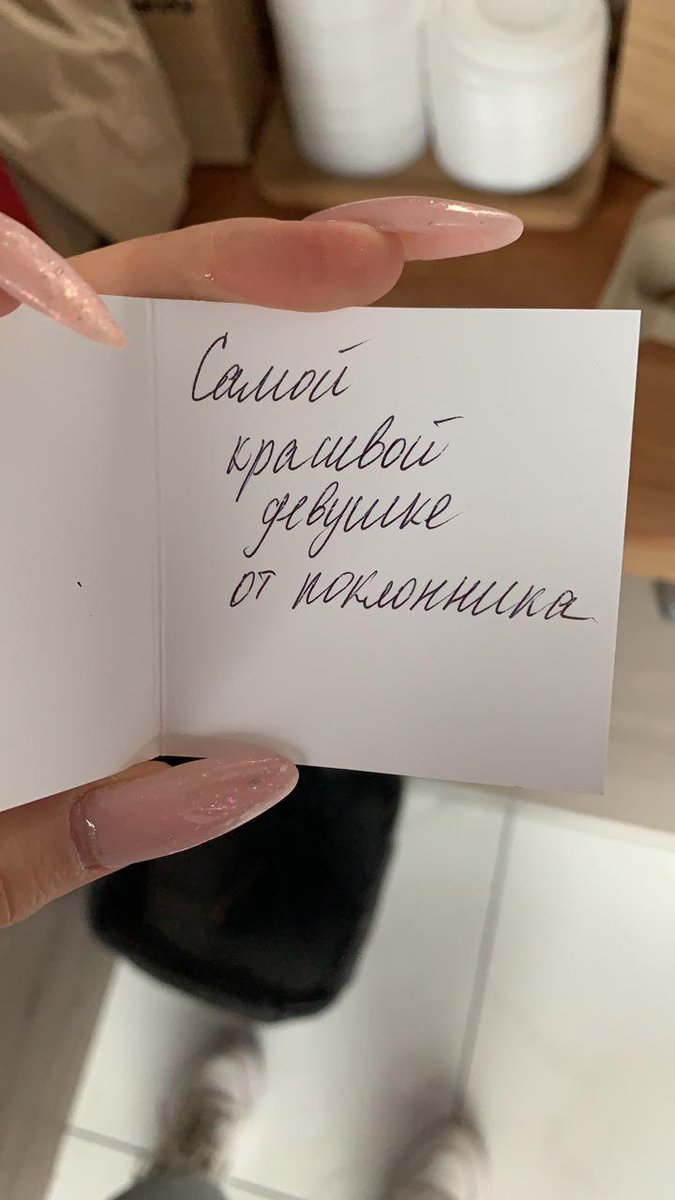 Самой
красивой
девушке
от поклонника